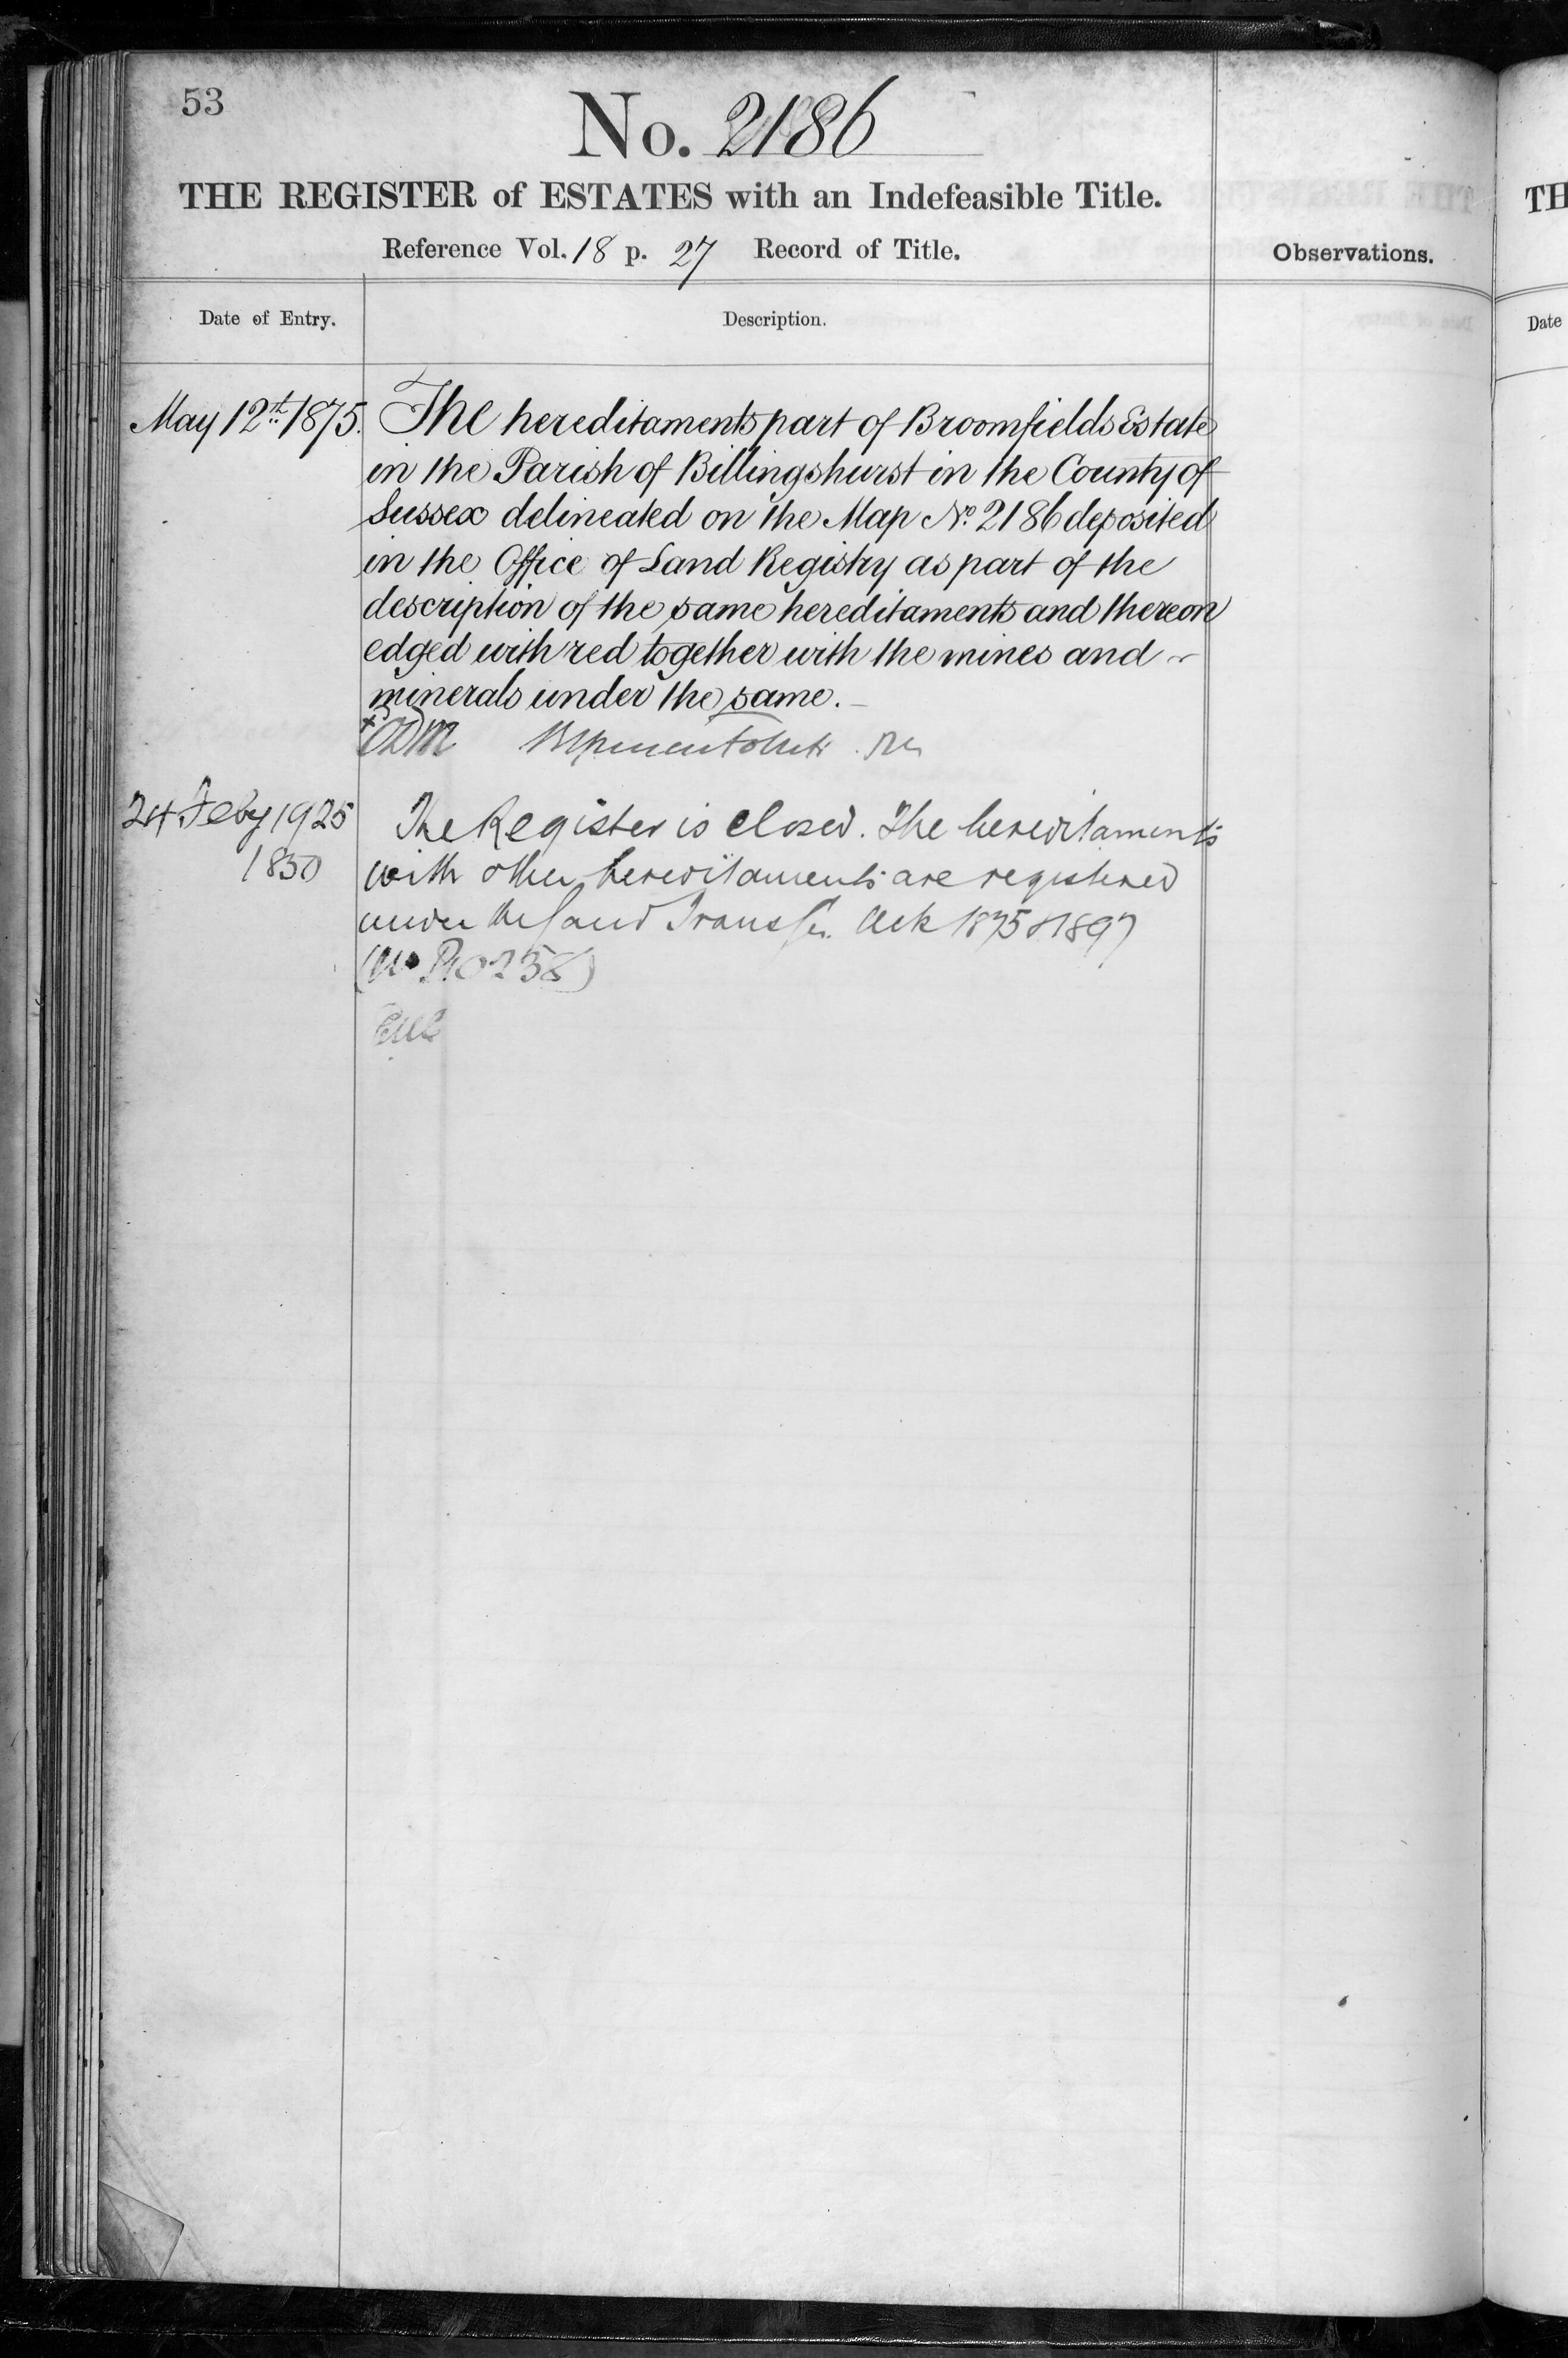 53
No. 2186
THE REGISTER of ESTATES with an Indefeasible Title.
Reference Vol. 18 p. 27 Record of Title.
Observations.
Date of Entry.
Description.
May 12th 1875. The hereditaments part of Broomfields Estate
in the Parish of Billingshurst in the County of
Sussex delineated on the Map No. 2186 deposited
in the Office of Land Registry as part of the
description of the same hereditaments and thereon
edged with red together with the mines and
minerals under the same.
24 Feby 1925 The Register is closed. The hereditaments
1850 with other hereditaments are registered
under the Land Transfer Acts 1875 & 1897
(No P.10238)
TH
Date